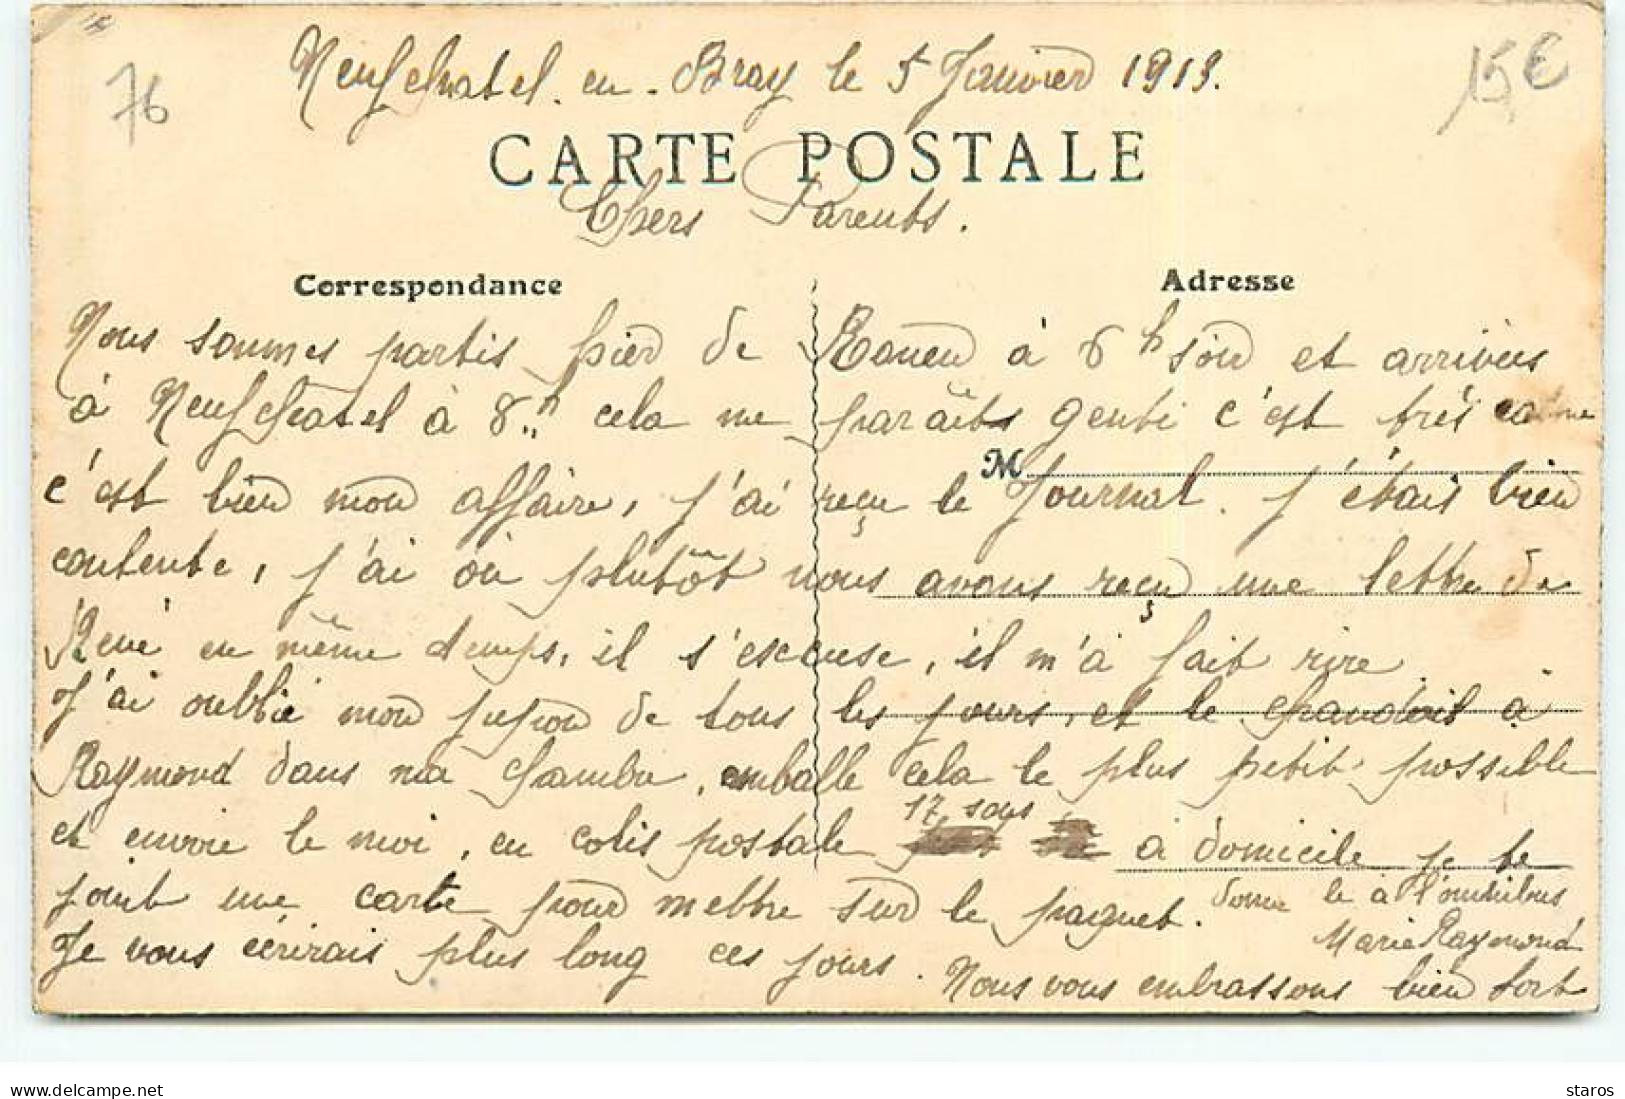 76
15€
Neufchatel. en. Bray le 5 Janvier 1913.
CARTE POSTALE
Chers Parents.
Correspondance
Adresse
Nous sommes partis hier de Rouen à 6 h soir et arrivées
à Neufchatel à 8h cela me paraît gentil c'est très calme
M
c'est bien mon affaire, j'ai reçu le Journal. J'étais bien
contente, j'ai où plutôt nous avons reçu une lettre de
René en même temps, il s'excuse, il m'a fait rire
J'ai oublié mon jupon de tous les jours, et le chandail à
Raymond dans ma chambre, emballe cela le plus petit possible
et envoie le moi, en colis postale 17 sous à domicile je te
joint une carte pour mettre sur le paquet. donne le à l'omnibus
Je vous écrirais plus long ces jours. Nous vous embrassons bien fort
Marie Raymond
http://www.delcampe.net
staros